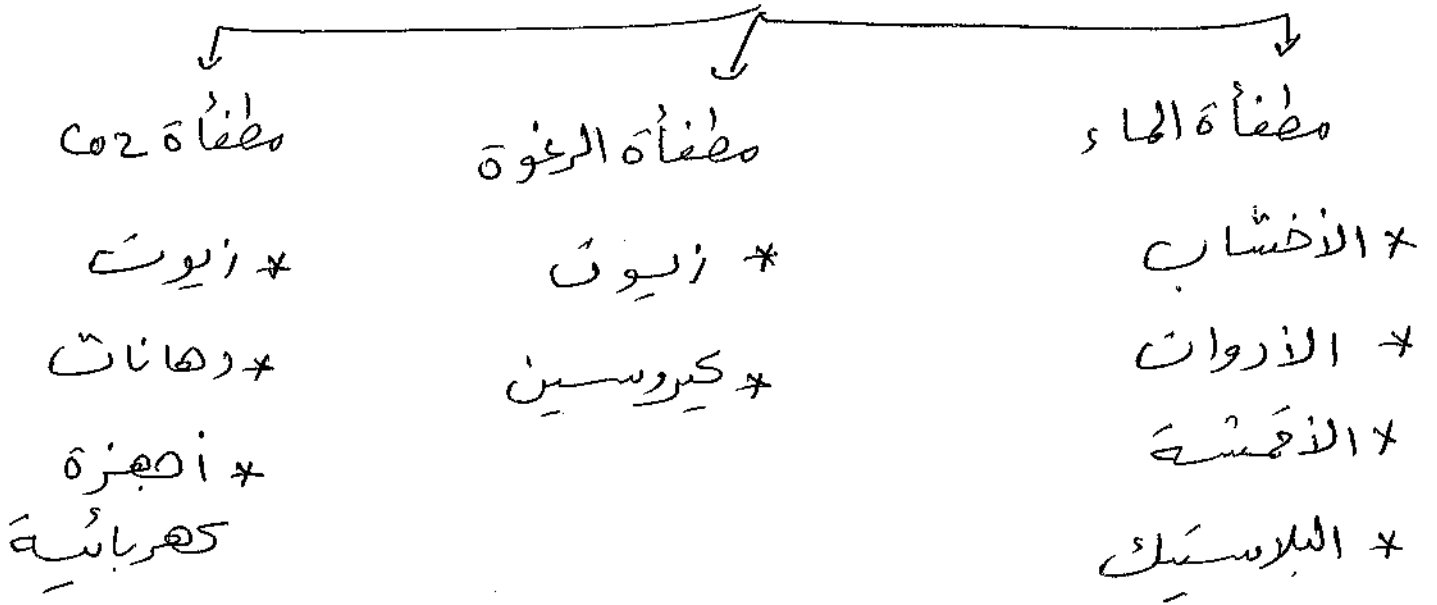 مطفأة الماء
* الأخشاب
* الأدوات
* الأقمشة
* البلاستيك
مطفأة الرغوة
* زيوت
* كيروسين
مطفأة CO2
* زيوت
* دهانات
* أجهزة
كهربائية